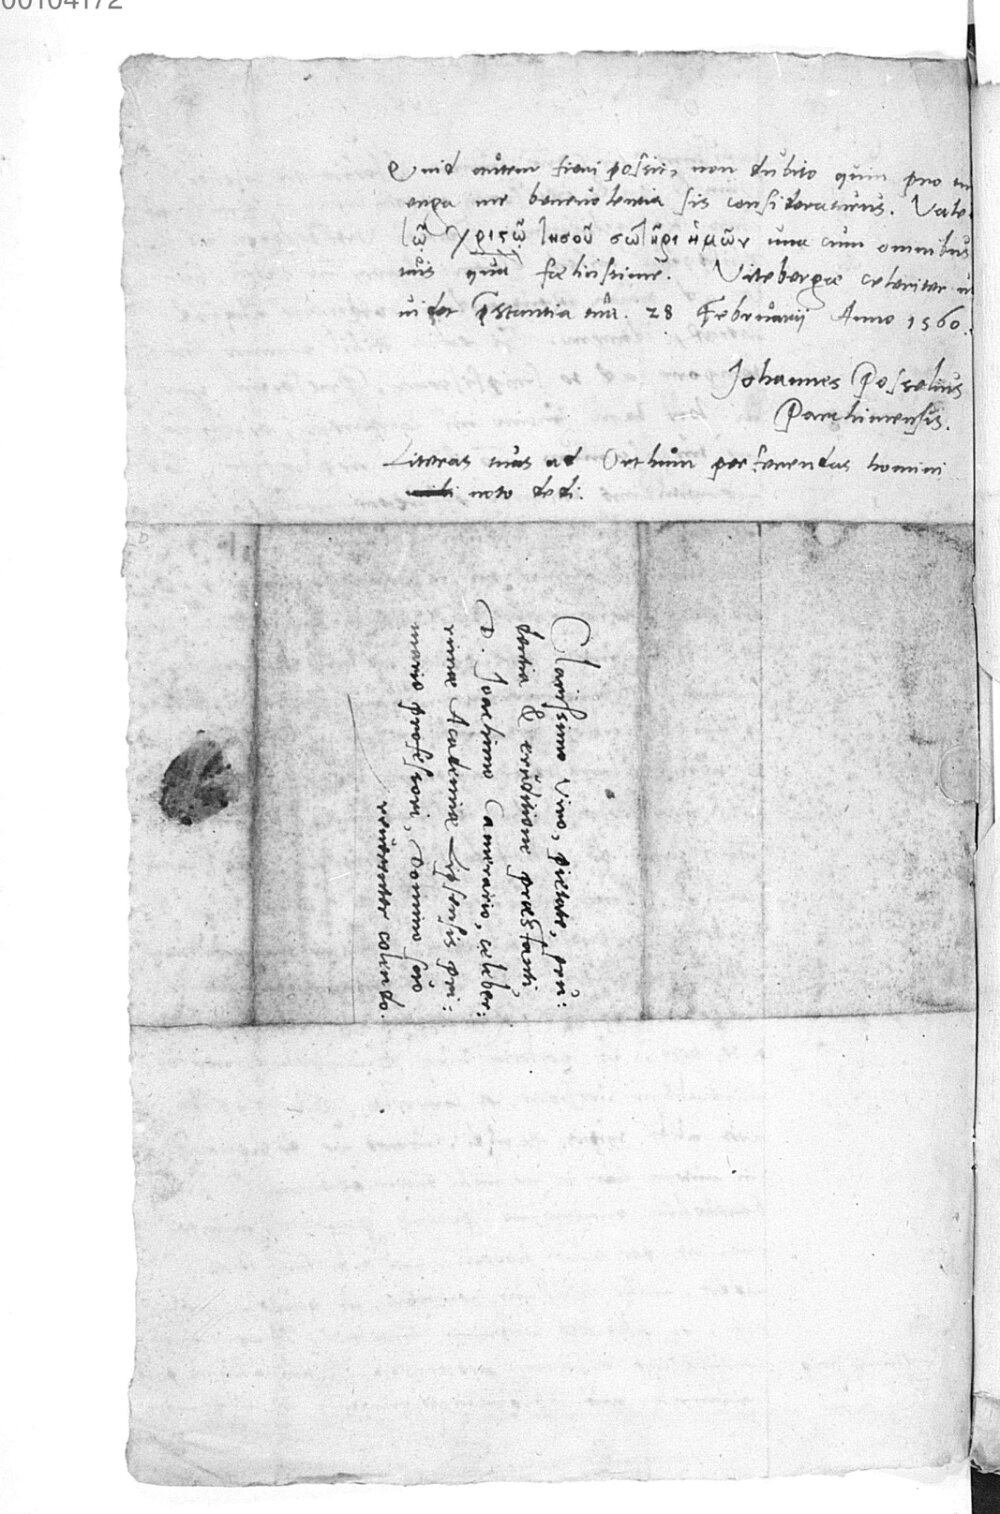 00104172
Quid autem fieri possit, non dubito quin pro tu
erga me beneuolentia sis consideraturus. Vale
ἐν χριστῷ Ἰησοῦ σωτῆρι ἡμῶν una cum omnibus
tuis quam fœlicissime. Vitebergæ celeriter
28 Februarij Anno 1560.
Johannes Posselius
Parchimensis.
Literas tuas ad Orthum perferendas homini
noto dedi.
Clarissimo Viro, pietate, pru:
dentia & eruditione præstanti,
D. Joachimo Camerario, celeber:
rimæ Academiæ Lipsensis pri:
mario professori, Domino suo
reuerenter colendo.